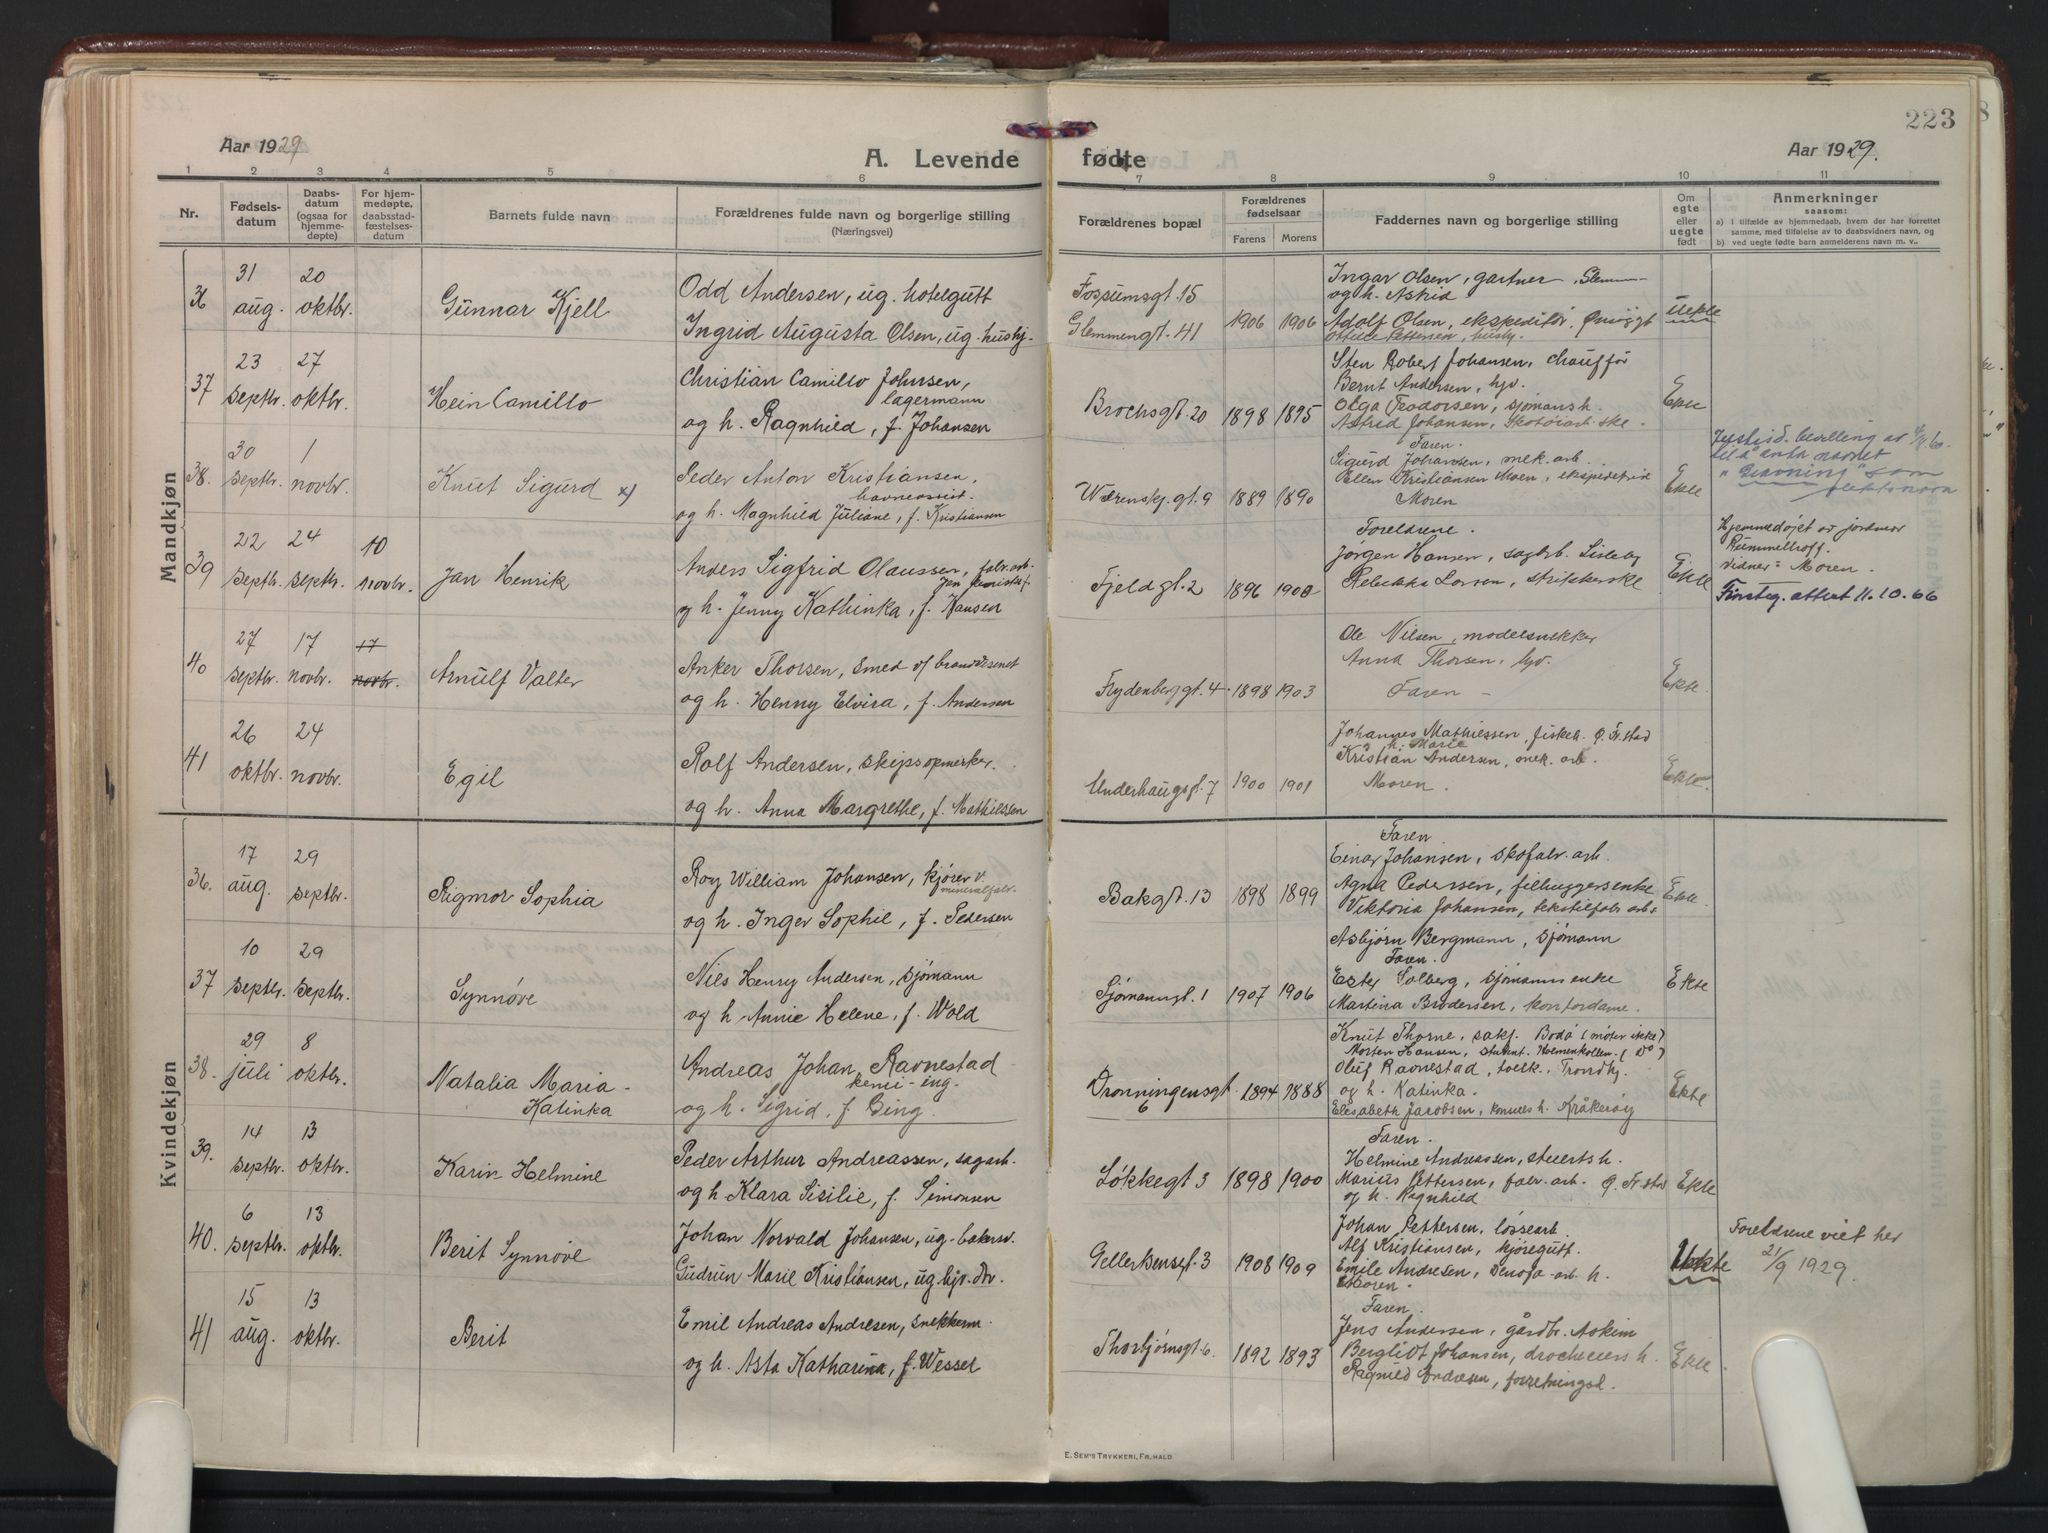 223
Aar 1929
A. Levende
fødte
Aar 1929.
1 2 3 4 5 6 7 8 9 10 11
Nr.
Fødsels-
datum
Daabs-
datum
(ogsaa for
hjemme-
døpte)
For hjem-
medøpte,
daabsstad-
fæstelses-
datum
Barnets fulde navn
Forældrenes fulde navn og borgerlige stilling
(Næringsvei)
Forældrenes bopæl
Forældrenes
fødselsaar
Farens
Morens
Faddernes navn og borgerlige stilling
Om
egte
eller
uegte
født
Anmerkninger
saasom:
a) i tilfælde av hjemmedaab, hvem der har forrettet
samme, med tilføielse av to daabsvidners navn, og
b) ved uegte fødte barn anmelderens navn m. v..
Mandkjøn
36
31 aug.
20 oktbr.
Gunnar Kjell
Odd Andersen, ug. hotelgutt
Ingrid Augusta Olsen, ug. hushj.
Fossumsgt. 15
Glemmengt. 41
1906 1906
Ingar Olsen, gartner, Glemm-
og h. Astrid
Adolf Olsen, ekspeditør,
Pettersen, hushj.
Uekte
37
23 septbr.
27 oktbr.
Hein Camillo
Christian Camillo Johnsen,
lagermann
og h. Ragnhild, f. Johansen
Brochsgt. 20
1898 1895
Sten Robert Johansen, chauffør
Bernt Andersen, hjv.
Olga Teodorsen, sjømansh.
Astrid Johansen, skotøiarb.ske.
Ekte
38.
30 septbr.
1 novbr.
Knut Sigurd x)
Peder Anton Kristiansen,
havneassist.
og h. Magnhild Juliane, f. Kristiansen
Wærenskj.gt. 9
1889 1890
Faren.
Sigurd Johansen, mek. arb.
Ellen Kristiansen Moen, ekspeditrise
Moren
Ekte
Justisd. bevilling av
til å anta navnet
som
slektsnavn
39
22 septbr.
24 septbr.
10 novbr.
Jan Henrik
Anders Sigfrid Olaussen, fabr. arb.
og h. Jenny Kathinka, f. Hansen
Fjeldgt. 2
1896 1900
Foreldrene.
Jørgen Hansen, sagarb. Lisleby
Rebekka Larsen, strikkerske
Ekte
Hjemmedøpt av jordmor
Rummelhoff.
Vidner: Moren.
Finsteg. attest 11.10.66
40
27 septbr.
17 novbr.
17 novbr.
Arnulf Valter
Anker Thorsen, smed v/ brandvesenet
og h. Henny Elvira, f. Andersen
Frydenberggt. 4
1898 1903
Ole Nilsen, modelsnekker
Anna Thorsen, hjv.
Faren -
Ekte
41
26 oktbr.
24 novbr.
Egil
Rolf Andersen, skipsopmerker.
og h. Anna Margrethe, f. Mathiessen
Underhaugsgt. 7
1900 1901
Johannes Mathiessen, fiskeh. Ø. Fr.stad
og h. Marie
Kristian Andersen, mek. arb.
Moren.
Ekte
Kvindekjøn
36.
17 aug.
29 septbr.
Rigmor Sophia
Roy William Johansen, kjører v.
mineralfabr.
og h. Inger Sophie, f. Pedersen
Bakgt. 13
1898 1899
Faren
Einar Johansen, skofabr. arb.
Agna Pedersen, filhuggersenke
Viktoria Johansen, tekstilfabr. arb.
Ekte.
37
10 septbr.
29 septbr.
Synnøve
Nils Henry Andersen, sjømann
og h. Annie Helene, f. Wold
Sjømannsgt. 1
1907 1906
Asbjørn Bergmann, sjømann
Faren.
Ester Solberg, sjømannsenke
Martina Brodersen, kontordame.
Ekte
38.
29 juli
8 oktbr.
Natalia Maria
Katinka
Andreas Johan Ravnestad
kemi-ing.
og h. Sigrid, f. Bing.
Dronningensgt.
6
1894 1888
Knut Thorne, sakf. Bodø (møter ikke)
Morten Hansen, student. Holmenkollen. (Do)
Oluf Ravnestad, tolk. Trondhj.
og h. Katinka.
Elisabeth Jacobsen, konsuls h. Kråkerøy
Ekte
39.
14 septbr.
13 oktbr.
Karin Helmine
Peder Arthur Andreassen, sagarb.
og h. Klara Sisilie, f. Simonsen
Løkkegt 3
1898 1900
Faren.
Helmine Andreassen, stuerts h.
Marius Pettersen, fabr. arb. Ø. Fr.stad
og h. Ragnhild
Ekte
40.
6 septbr.
13 oktbr.
Berit Synnøve
Johan Norvald Johansen, ug. bakersv.
Gudrun Marie Kristiansen, ug. hjv. dtr.
Gellerbensgt. 3
1908 1909
Johan Pettersen, løssearb
Alf Kristiansen, kjøregutt.
Emilie Andresen, Denofa-arb. h.
Moren.
Uekte
Foreldrene viet her
21/9 1929.
41
15 aug.
13 oktbr.
Berit
Emil Andreas Andresen, snekkerm.
og h. Asta Katharina, f. Wessel
Thorbjørnsgt. 6.
1892 1893
Faren.
Jens Andersen, gårdbr. Askim
Bergliot Johansen, h.
Ragnild Andresen, forretningsd.
Ekte.
E. SEM'S TRYKKERI, FR.HALD